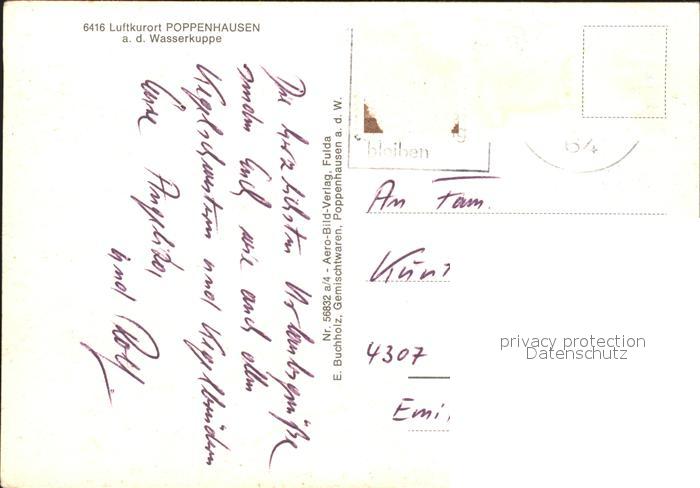 6416 Luftkurort POPPENHAUSEN
a. d. Wasserkuppe
Die herzlichsten Urlaubsgrüße
senden Euch wie auch allen
Kegelschwestern und Kegelbrüdern
Eure Angelika,
und Rolf
Nr. 56832 a/4 - Aero-Bild-Verlag, Fulda
E. Buchholz, Gemischtwaren, Poppenhausen a. d. W.
bleiben
64
An Fam.
4307
privacy protection
Datenschutz